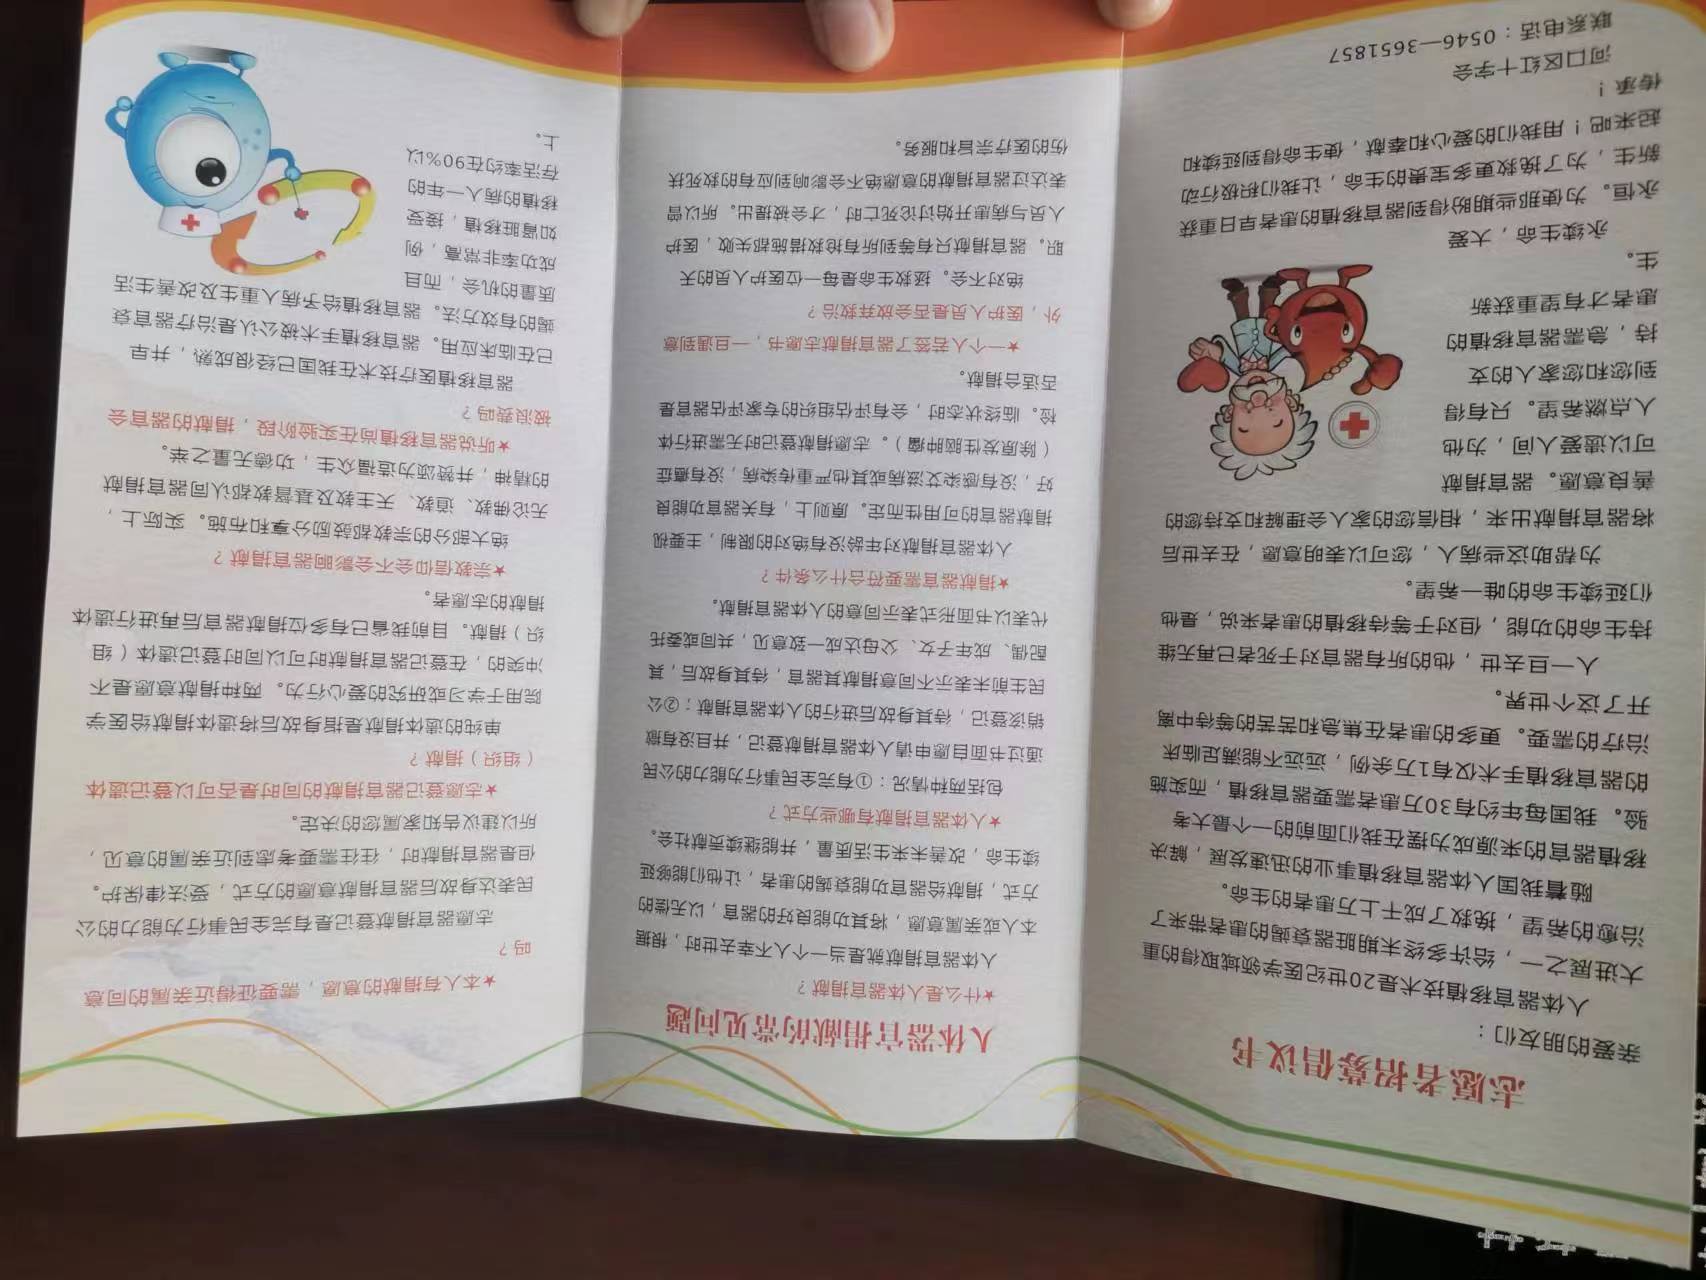 志愿者招募倡议书
亲爱的朋友们：
人体器官移植技术是20世纪医学领域取得的重
大进展之一，给许多终末期脏器衰竭的患者带来了
治愈的希望，挽救了成千上万患者的生命。
随着我国人体器官移植事业的迅速发展，解决
移植器官的来源成为摆在我们面前的一个最大考
验。我国每年约有30万患者需要器官移植，而实施
的器官移植手术仅有1万余例，远远不能满足临床
治疗的需要。更多的患者在焦急和苦苦的等待中离
开了这个世界。
人一旦去世，他的所有器官对于死者已再无维
持生命的功能，但对于等待移植的患者来说，是他
们延续生命的唯一希望。
为帮助这些病人，您可以表明意愿，在去世后
将器官捐献出来，相信您的家人会理解和支持您的
善良意愿。器官捐献
可以遗爱人间，为他
人点燃希望。只有得
到您和您家人的支
持，急需器官移植的
患者才有望重获新
生。
永续生命，大爱
永恒。为使那些期盼得到器官移植的患者早日重获
新生，为了挽救更多宝贵的生命，让我们积极行动
起来吧！用我们的爱心和奉献，使生命得到延续和
传承！
河口区红十字会
联系电话：0546—3651857
人体器官捐献的常见问题
★什么是人体器官捐献？
人体器官捐献就是当一个人不幸去世时，根据
本人或亲属意愿，将其功能良好的器官，以无偿的
方式，捐献给器官功能衰竭的患者，让他们能够延
续生命，改善未来生活质量，并能继续贡献社会。
★人体器官捐献有哪些方式？
包括两种情况：①有完全民事行为能力的公民
通过书面自愿申请人体器官捐献登记，并且没有撤
销该登记，待其身故后进行的人体器官捐献；②公
民生前未表示不同意捐献其器官，待其身故后，其
配偶、成年子女、父母达成一致意见，共同或委托
代表以书面形式表示同意的人体器官捐献。
★捐献器官需要符合什么条件？
人体器官捐献对年龄没有绝对的限制，主要视
捐献器官的可用性而定。原则上，有关器官功能良
好，没有感染艾滋病或其他严重传染病，没有癌症
（除原发性脑肿瘤）。志愿捐献登记时无需进行体
检。临终状态时，会有评估组织的专家评估器官是
否适合捐献。
★一个人若签了器官捐献志愿书，一旦遇到意
外，医护人员是否会放弃救治？
绝对不会。拯救生命是每一位医护人员的天
职。器官捐献只有等到所有抢救措施都失败，医护
人员与病患开始讨论死亡时，才会被提出。所以曾
表达过器官捐献的意愿绝不会影响到应有的救死扶
伤的医疗宗旨和服务。
★本人有捐献的意愿，需要征得近亲属的同意
吗？
志愿器官捐献登记是有完全民事行为能力的公
民表达身故后器官捐献意愿的方式，受法律保护。
但是器官捐献时，往往需要考虑到近亲属的意见，
所以建议告知家属您的决定。
★志愿登记器官捐献的同时是否可以登记遗体
（组织）捐献？
单纯的遗体捐献是指身故后将遗体捐献给医学
院用于学习或研究的爱心行为。两种捐献意愿是不
冲突的，在登记器官捐献时可以同时登记遗体（组
织）捐献。目前我省已有多位捐献器官后再进行遗体
捐献的志愿者。
★宗教信仰会不会影响器官捐献？
绝大部分的宗教都鼓励分享和布施。实际上，
无论佛教、道教、天主教及基督教都认同器官捐献
的精神，并赞颂为造福众生，功德无量之举。
★听说器官移植尚在实验阶段，捐献的器官会
被浪费吗？
器官移植医疗技术在我国已经很成熟，并早
已在临床应用。器官移植手术被公认是治疗器官衰
竭的有效方法。器官移植给予病人重生及改善生活
质量的机会，而且
成功率非常高，例
如肾脏移植，接受
移植的病人一年的
存活率约在90%以
上。